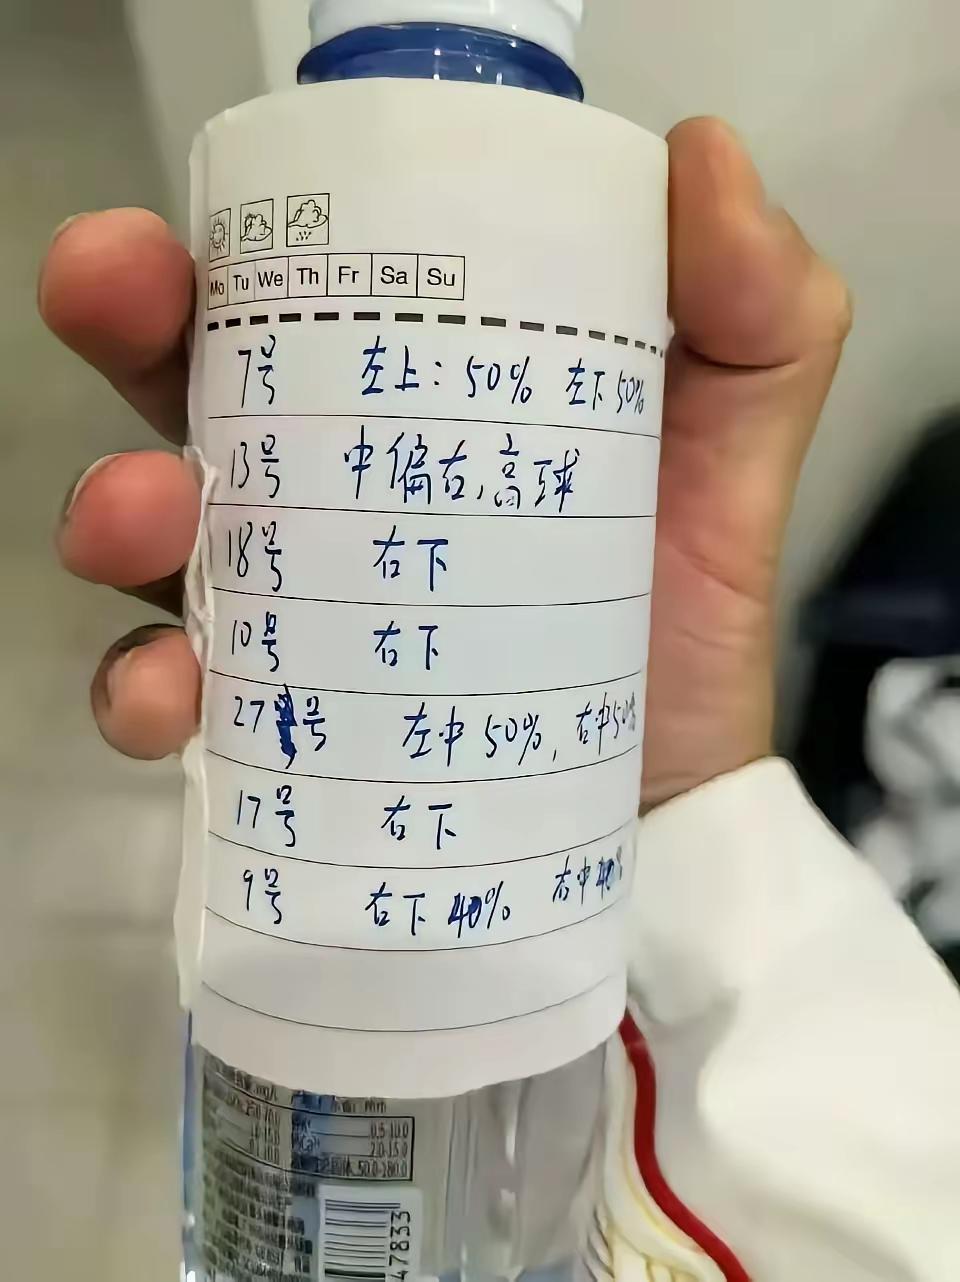 Mo Tu We Th Fr Sa Su
7号 左上：50% 左下50%
13号 中偏右，高球
18号 右下
10号 右下
27号 左中50%，右中50%
17号 右下
9号 右下40% 右中40%
0.5-10.0
2.0-15.0
50.0-180.0
47833